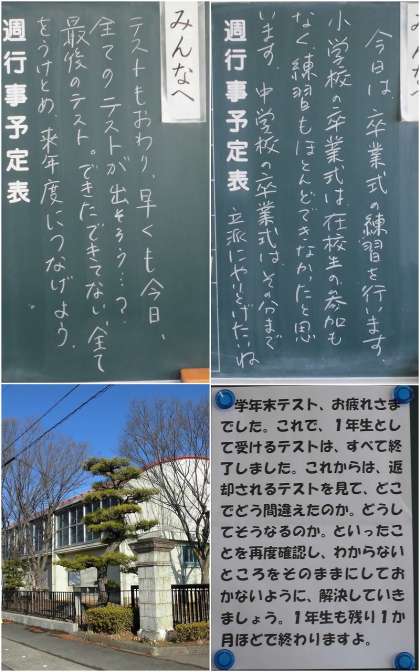 みんなへ
テストもおわり、早くも今日、
全てのテストが出そろう…?
最後のテスト。できたできてない、全て
をうけとめ、来年度につなげよう。
週行事予定表
みんなへ
今日は、卒業式の練習を行います。
小学校の卒業式は在校生の参加も
なく、練習もほとんどできなかったと思
います。中学校の卒業式は、その分まで
立派にやりとげたいね
週行事予定表
学年末テスト、お疲れさま
でした。これで、1年生とし
て受けるテストは、すべて終
了しました。これからは、返
却されるテストを見て、どこ
でどう間違えたのか。どうし
てそうなるのか。といったこ
とを再度確認し、わからない
ところをそのままにしてお
かないように、解決していき
ましょう。1年生も残り1か
月ほどで終わりますよ。